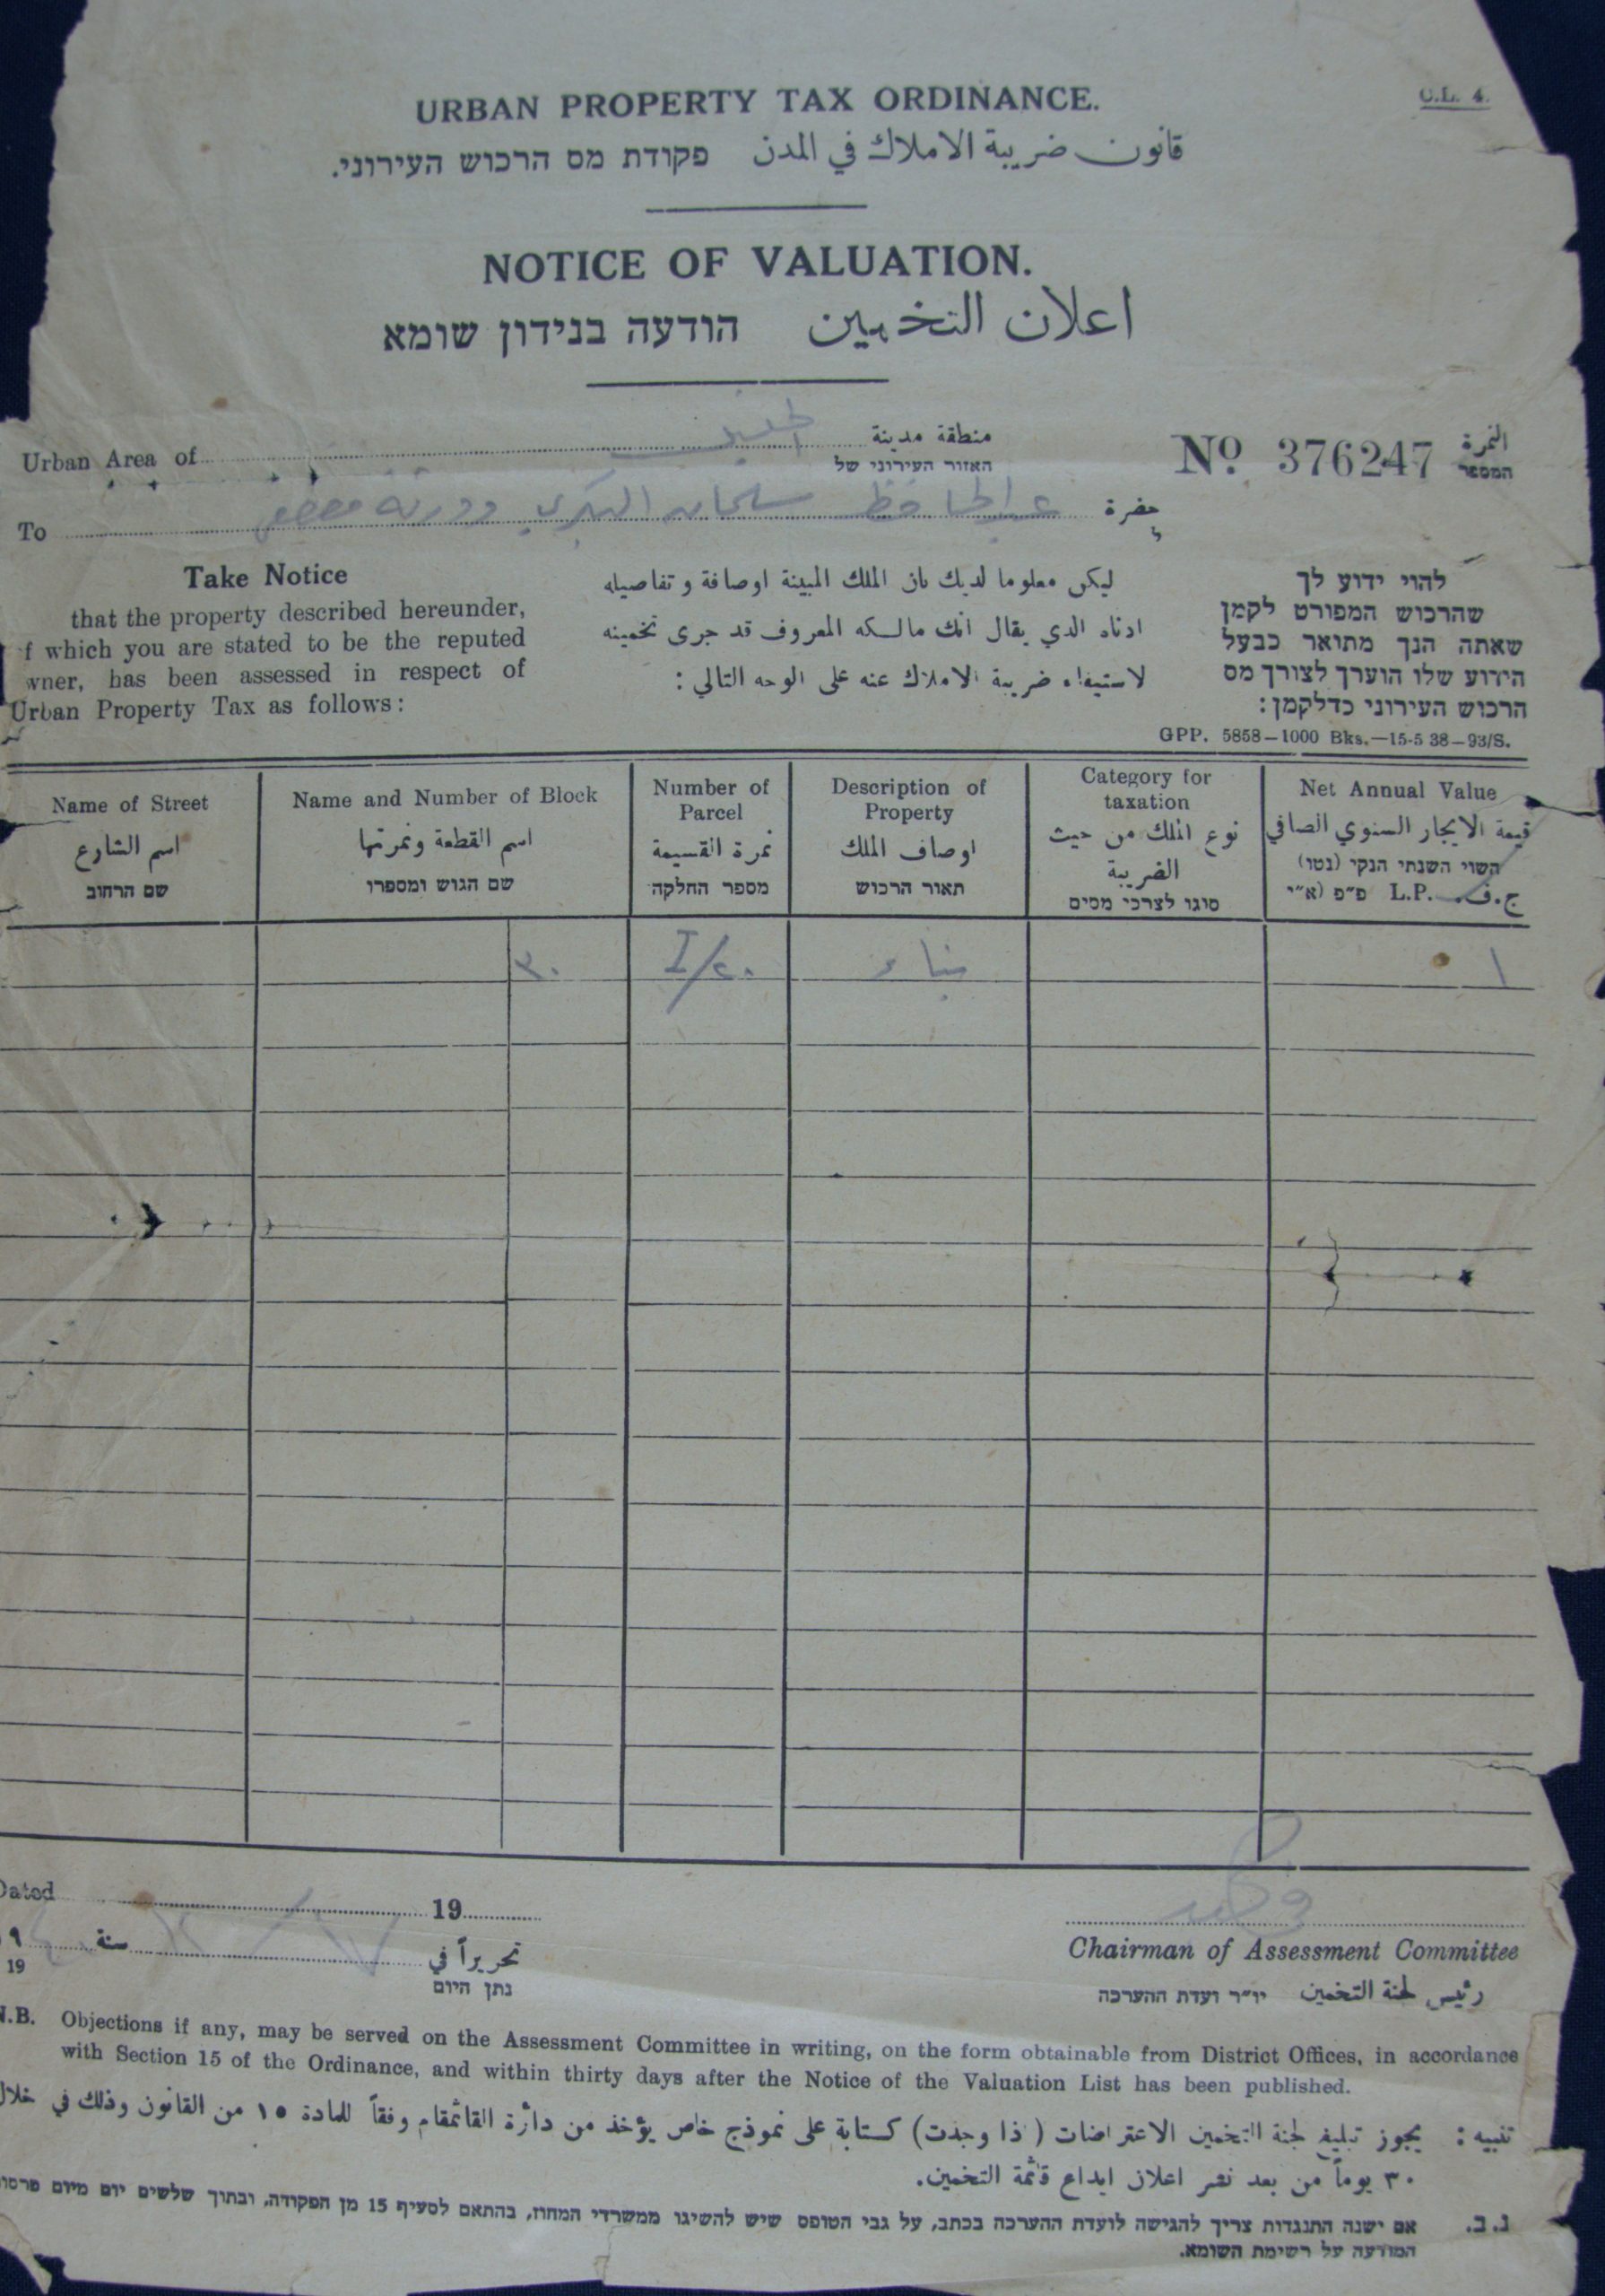 C.L. 4.
URBAN PROPERTY TAX ORDINANCE.
قانون ضريبة الاملاك في المدن פקודת מס הרכוש העירוני.
NOTICE OF VALUATION.
اعلان التخمين הודעה בנידון שומא
Urban Area of منطقة مدينة
האזור העירוני של
No. 376247 النمرة
המספר
To عبد الحافظ سليمان البكري حضرة
ל
Take Notice
that the property described hereunder,
f which you are stated to be the reputed
wner, has been assessed in respect of
Urban Property Tax as follows:
ليكن معلوما لديك بان الملك المبينة اوصافة وتفاصيله
ادناه الذي يقال انك مالكه المعروف قد جرى تخمينه
لاستيفاء ضريبة الاملاك عنه على الوجه التالي:
להוי ידוע לך
שהרכוש המפורט לקמן
שאתה הנך מתואר כבעל
הידוע שלו הוערך לצורך מס
הרכוש העירוני כדלקמן:
GPP. 5858—1000 Bks.—15-5 38—93/S.
Name of Street
اسم الشارع
שם הרחוב
Name and Number of Block
اسم القطعة ونمرتها
שם הגוש ומספרו
Number of
Parcel
نمرة القسيمة
מספר החלקה
Description of
Property
اوصاف الملك
תאור הרכוש
Category for
taxation
نوع الملك من حيث
الضريبة
סוגו לצרכי מסים
Net Annual Value
قيمة الايجار السنوي الصافي
השוי השנתי הנקי (נטו)
ج.ف. L.P. פ״פ (א״י
٣٠ I/٢٠ بناء ١
Dated 19
تحريراً في سنة ١٩
נתן היום 19
Chairman of Assessment Committee
رئيس لجنة التخمين יו״ר ועדת ההערכה
N.B. Objections if any, may be served on the Assessment Committee in writing, on the form obtainable from District Offices, in accordance
with Section 15 of the Ordinance, and within thirty days after the Notice of the Valuation List has been published.
تنبيه: يجوز تبليغ لجنة التخمين الاعتراضات (اذا وجدت) كتابة على نموذج خاص يؤخذ من دائرة القائمقام وفقاً للمادة ١٥ من القانون وذلك في خلال
٣٠ يوماً من بعد نشر اعلان ايداع قائمة التخمين.
נ.ב. אם ישנה התנגדות צריך להגישה לועדת ההערכה בכתב, על גבי הטופס שיש להשיגו ממשרדי המחוז, בהתאם לסעיף 15 מן הפקודה, ובתוך שלשים יום מיום פרסום
המודעה על רשימת השומא.